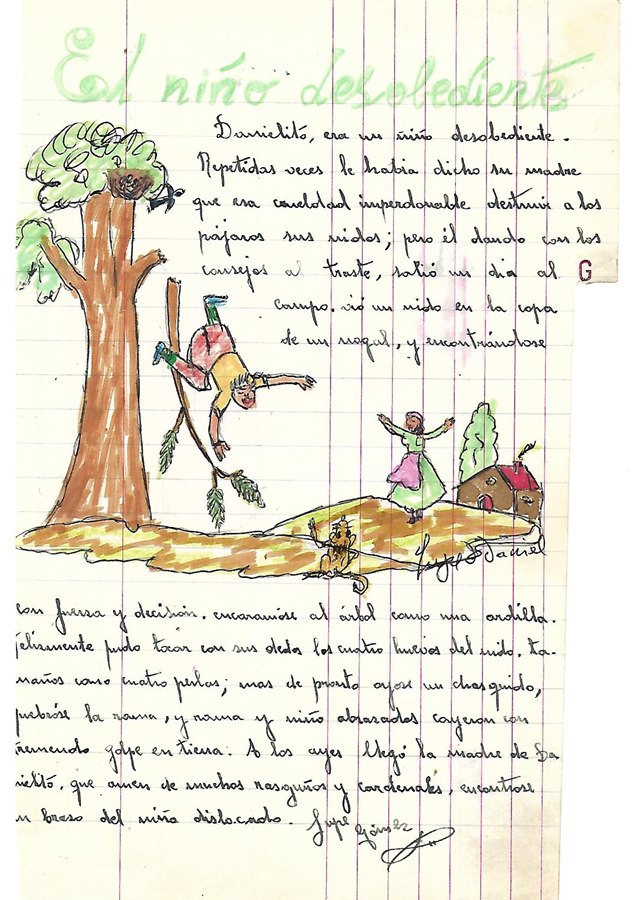 El niño desobediente
Danielito, era un niño desobediente.
Repetidas veces le habia dicho su madre
que era crueldad imperdonable destruir a los
pájaros sus nidos; pero él dando con los
consejos al traste, salió un dia al
G
campo. vió un nido en la copa
de un nogal, y encontrándose
con fuerza y decisión. encaramóse al árbol como una ardilla.
felizmente pudo tocar con sus dedos los cuatro huevos del nido. ta-
maños como cuatro perlas; mas de pronto oyose un chasquido,
quebróse la rama, y rama y niño abrazados cayeron con
tremendo golpe en tierra. A los ayes llegó la madre de Da
nielito, que amen de muchos rasguños y cardenales, encontrose
un brazo del niño dislocado.